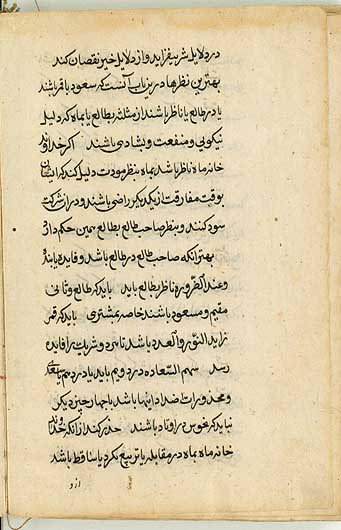 در دلایل شر بیفزاید و از دلایل خیر نقصان کند
بهترین نظرها درین باب آنست که سعود با قمر باشند
یا در طالع یا ناظر باشند از مثلثه بطالع یا بماه که دلیل
نیکویی و منفعت و بشادی باشند اکر خداوند
خانه ماه ناظر باشد بماه بنظر مودت دلیل کند که ایشان
بوقت مفارقت از یکدیکر راضی باشند و در ان شرکت
سود کنند و بنظر صاحب طالع بطالع همین حکم دارد
بهتر آنکه صاحب طالع در طالع باشد و فایده
ناظر بطالع باید باید که طالع و ثانی
مقیم و مسعود باشند خاصه بمشتری باید که قمر
زاید النور و العدد باشد تا سود و شریک را فایده
رسد سهم السعاده در دویم باید یا در دهم یا
و محذورات اضداد اینها باشد با چهار چیز دیکر
نباید که نحوس در اوتاد باشند حذر کند از انکه خداوند
خانه ماه بماه در مقابله یا تربیع نکرد یا ساقط باشد
ازو